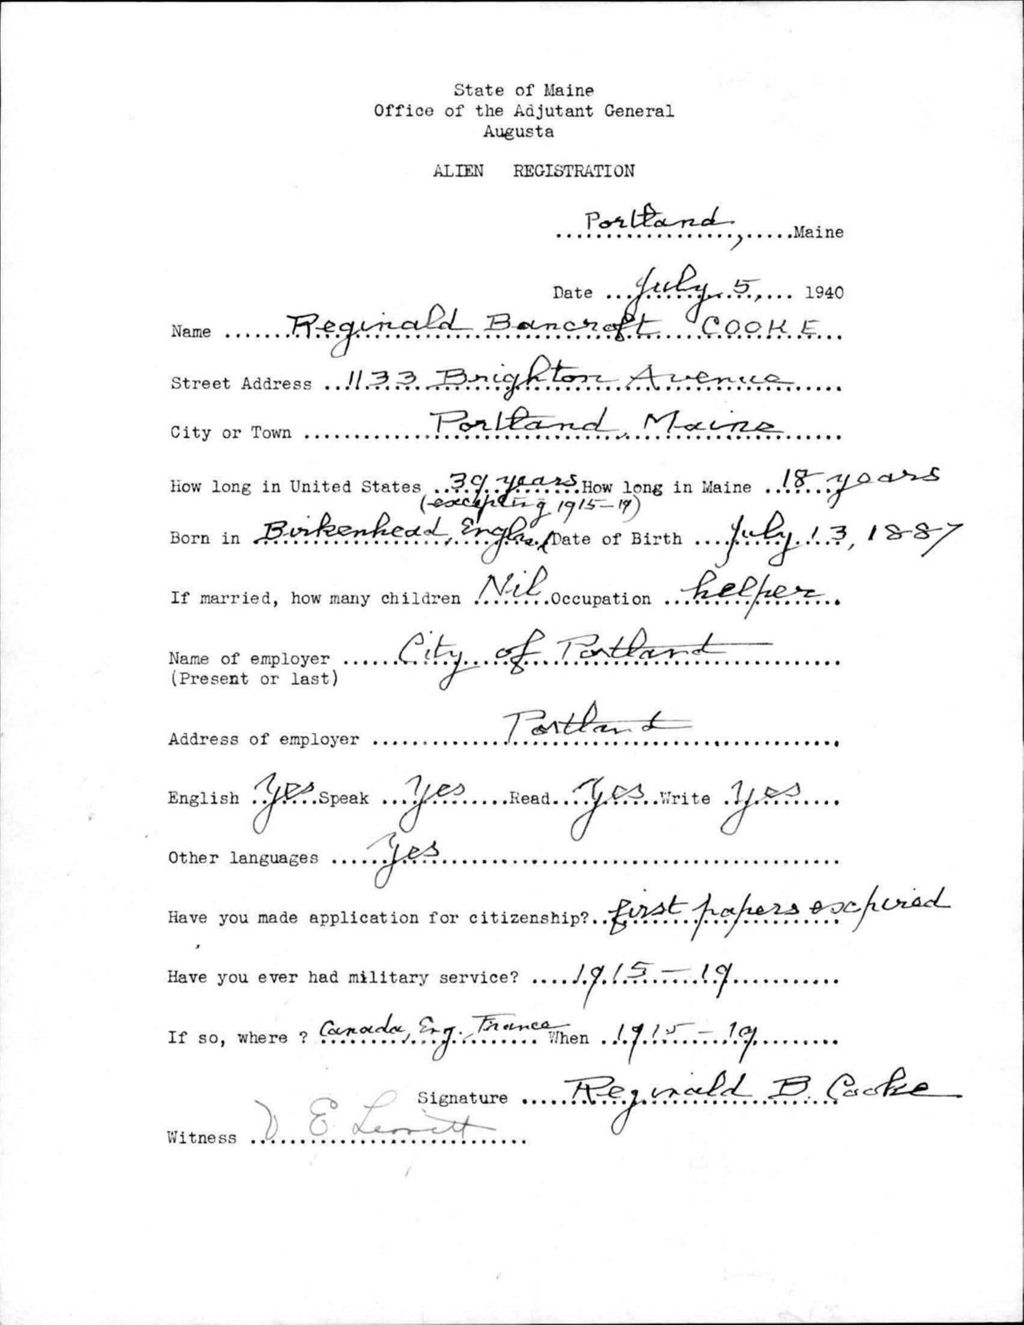 State of Maine
Office of the Adjutant General
Augusta
ALIEN REGISTRATION
Portland, Maine
Date July 5, 1940
Name Reginald Bancroft COOKE
Street Address 1133 Brighton Avenue
City or Town Portland, Maine
How long in United States 39 years How long in Maine 18 years
(excepting 1915-19)
Born in Birkenhead, Engl. Date of Birth July 13, 1887
If married, how many children Nil Occupation helper
Name of employer City of Portland
(Present or last)
Address of employer Portland
English Yes Speak Yes Read Yes Write Yes
Other languages Yes
Have you made application for citizenship? first papers expired
Have you ever had military service? 1915-19
If so, where ? Canada, Eng., France When 1915-19
Signature Reginald B. Cooke
Witness E